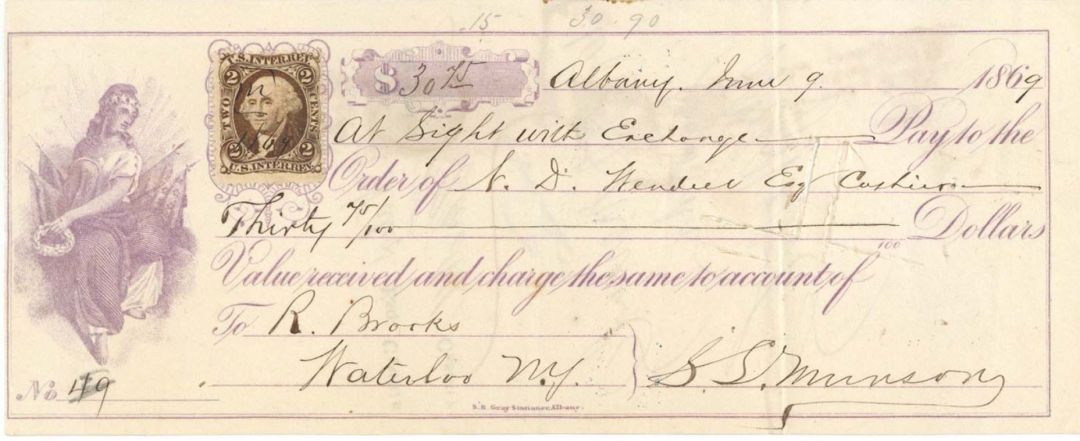 15 30.90
$ 30 75 Albany, June 9 1869
U.S. INTER. REV.
2 2
TWO CENTS
2 2
U.S. INTER. REV.
At Sight with Exchange Pay to the
Order of N. D. Wendell Esq Cashier
Thirty 75/100 100 Dollars
Value received and charge the same to account of
To R. Brooks
Waterloo N.Y. S. S. Munson
No 49
S. R. Gray Stationer, Albany.